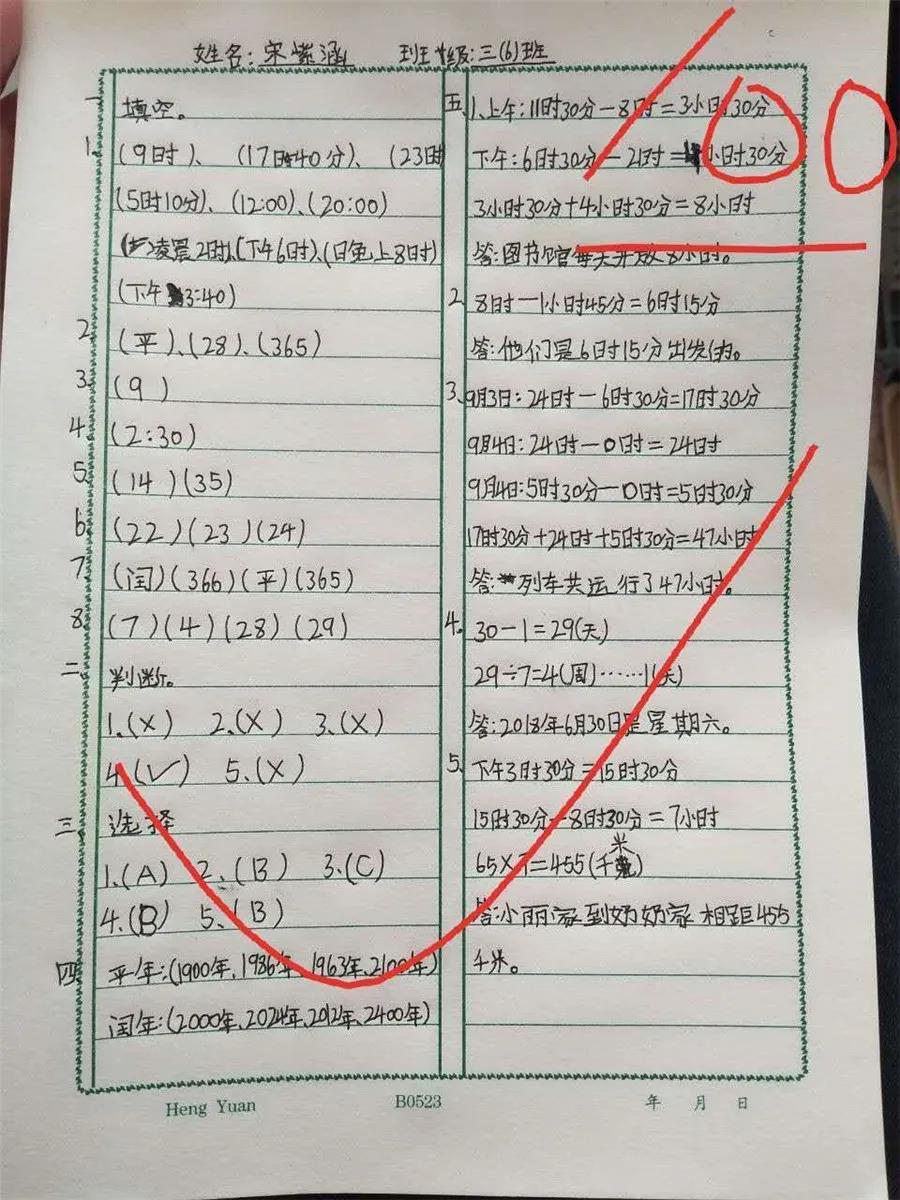 姓名:宋紫涵 班级:三(6)班
一 填空。
1. (9时)、(17时40分)、(23时
(5时10分)、(12:00)、(20:00)
凌晨2时)、(下午6时)、(晚上8时)
(下午3:40)
2. (平)、(28)、(365)
3. (9)
4. (2:30)
5. (14)(35)
6. (22)(23)(24)
7. (闰)(366)(平)(365)
8. (7)(4)(28)(29)
二 判断。
1.(X) 2.(X) 3.(X)
4.(✓) 5.(X)
三 选择
1.(A) 2.(B) 3.(C)
4.(B) 5.(B)
四 平年:(1900年、1986年、1963年、2100年)
闰年:(2000年、2024年、2012年、2400年)
五、1.上午:11时30分-8时=3小时30分
下午:6时30分-2时=4小时30分
3小时30分+4小时30分=8小时
答:图书馆每天开放8小时。
2. 8时-1小时45分=6时15分
答:他们是6时15分出发的。
3. 9月3日:24时-6时30分=17时30分
9月4日:24时-0时=24时
9月4日:5时30分-0时=5时30分
17时30分+24时+5时30分=47小时
答:列车共运行了47小时。
4. 30-1=29(天)
29÷7=4(周)……1(天)
答:2018年6月30日是星期六。
5. 下午3时30分=15时30分
15时30分-8时30分=7小时
65×7=455(千米)
答:小丽家到奶奶家相距455
千米。
100
Heng Yuan B0523 年 月 日